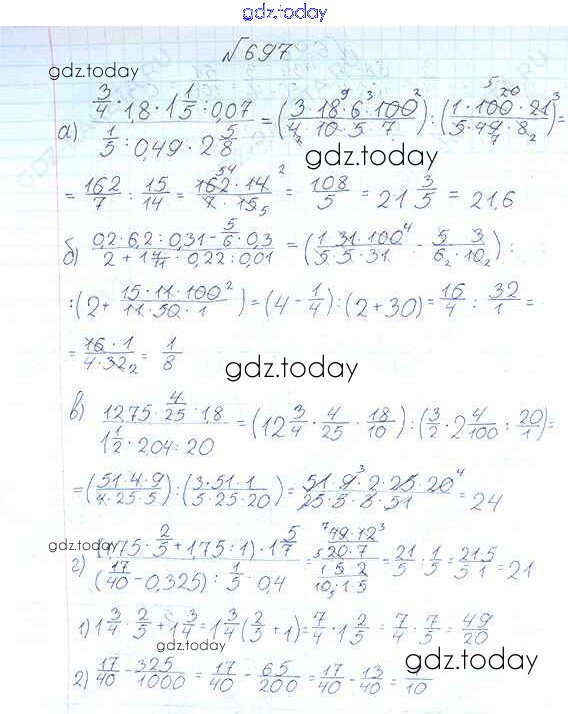 gdz.today
№697
gdz.today
а) (3/4 · 1,8 · 1 1/5 : 0,07) / (1/5 : 0,49 · 2 5/8) = (3·18·6·100 / 4·10·5·7) : (1·100·21 / 5·49·8) =
gdz.today
= 162/7 : 15/14 = 162·14 / 7·15 = 108/5 = 21 3/5 = 21,6
б) (0,2·6,2 : 0,31 − 5/6 · 0,3) / (2 + 1 4/11 · 0,22 : 0,01) = (1·31·100 / 5·5·31 − 5·3 / 6·10) :
: (2 + 15·11·100 / 11·50·1) = (4 − 1/4) : (2 + 30) = 16/4 : 32/1 =
= 16·1 / 4·32 = 1/8
gdz.today
в) (12,75 · 4/25 · 1,8) / (1 1/2 · 2,04 : 20) = (12 3/4 · 4/25 · 18/10) : (3/2 · 2 4/100 : 20/1) =
= (51·4·9 / 4·25·5) : (3·51·1 / 5·25·20) = 51·9·2·25·20 / 25·5·8·51 = 24
gdz.today
г) (1,75 · 2/5 + 1,75 : 1) · 1 5/7 / (17/40 − 0,325) : 1/5 · 0,4 = (49·12 / 20·7) / (1·5·2 / 10·1·5) = 21/5 : 1/5 = 21·5 / 5·1 = 21
1) 1 3/4 · 2/5 + 1 3/4 = 1 3/4 (2/5 + 1) = 7/4 · 1 2/5 = 7/4 · 7/5 = 49/20
gdz.today
2) 17/40 − 325/1000 = 17/40 − 65/200 = 17/40 − 13/40 = 1/10
gdz.today